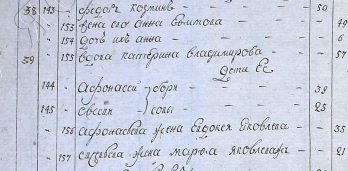 58 143 федоръ козминъ - 50
153 жена его анна ефимова - 49
154 дочь ихъ анна - 6
59 155 вдова катерина владимирова - 57
дети ее
144 афонасеи - 39
145 - 25
156 афонасьева жена евдокея яковлева - 35
157 жена марья яковлева - 21